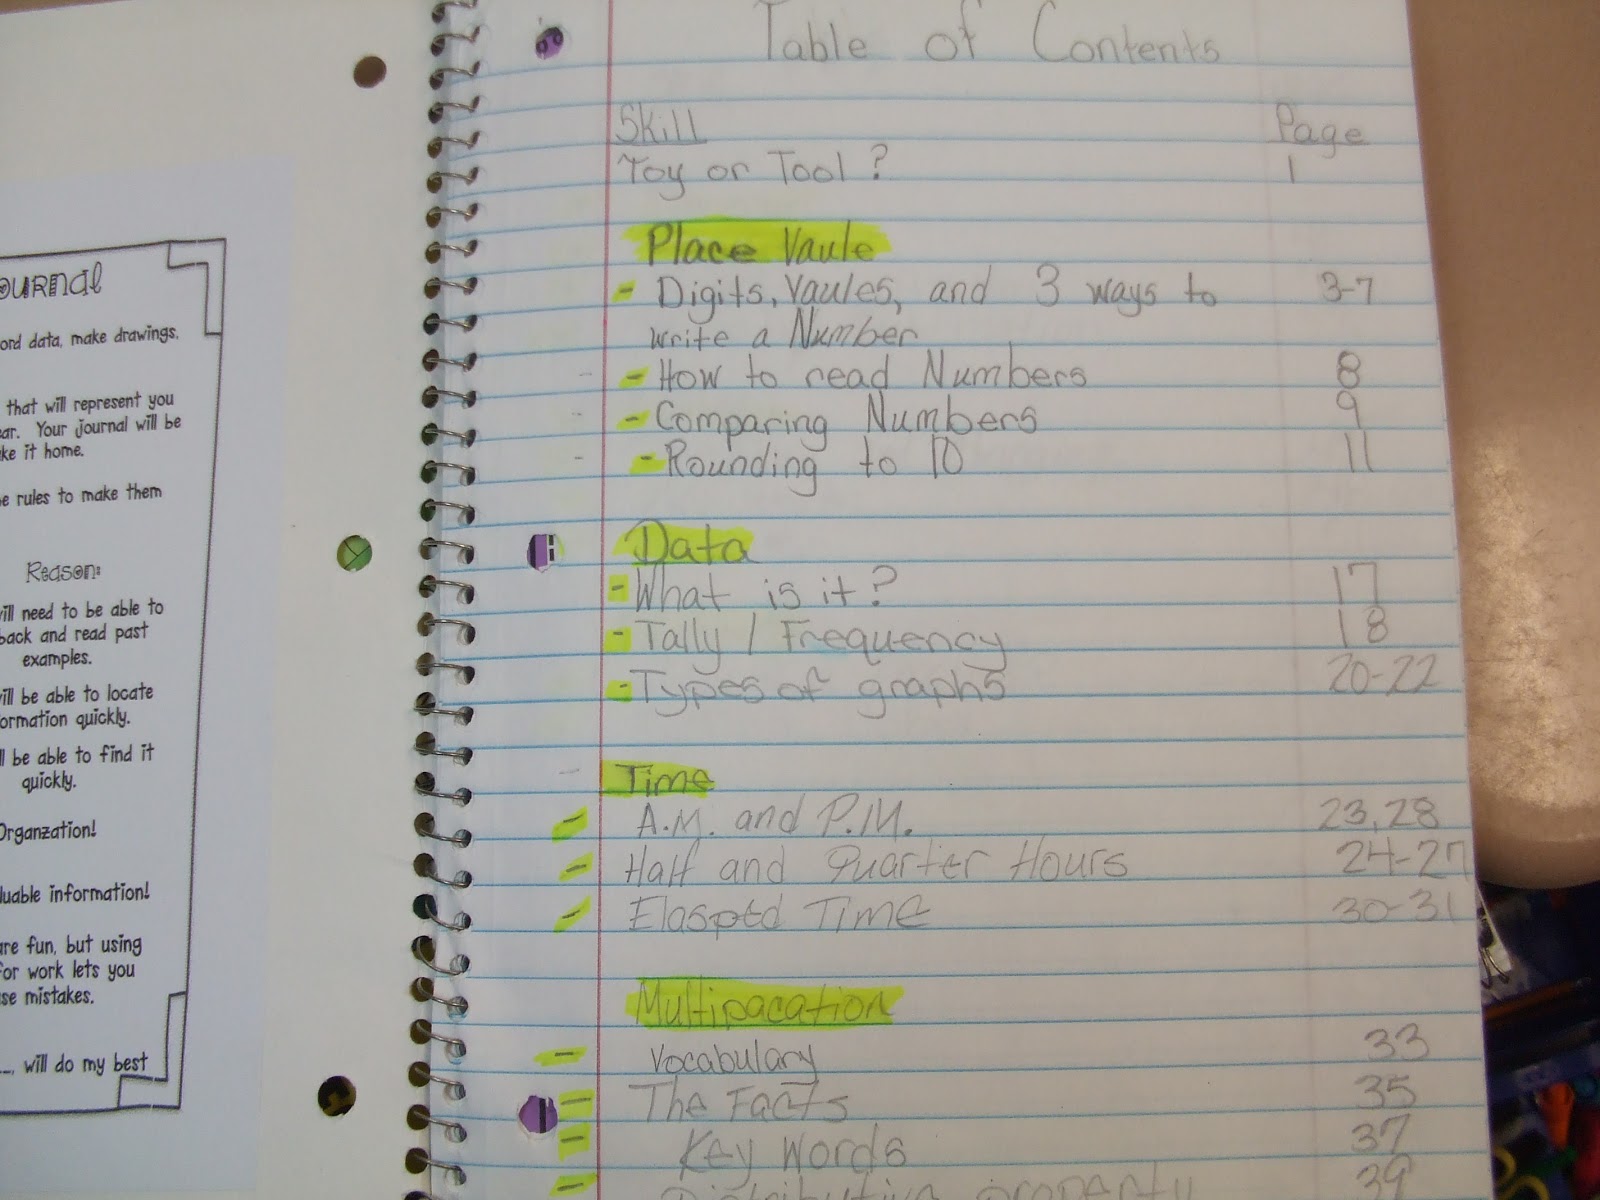 OURNAL
ord data, make drawings,
that will represent you
ar. Your journal will be
ke it home.
e rules to make them
Reason:
ill need to be able to
back and read past
examples.
ill be able to locate
ormation quickly.
ll be able to find it
quickly.
Organzation!
luable information!
are fun, but using
for work lets you
se mistakes.
, will do my best
Table of Contents
Skill Page
Toy or Tool? 1
Place Vaule
- Digits, Vaules, and 3 ways to 3-7
write a Number
- How to read Numbers 8
- Comparing Numbers 9
- Rounding to 10 11
Data
- What is it? 17
- Tally / Frequency 18
- Types of graphs 20-22
Time
- A.M. and P.M. 23,28
- Half and Quarter Hours 24-27
- Elasptd Time 30-31
Multipacation
- Vocabulary 33
- The Facts 35
- Key Words 37
- Distributive property 39